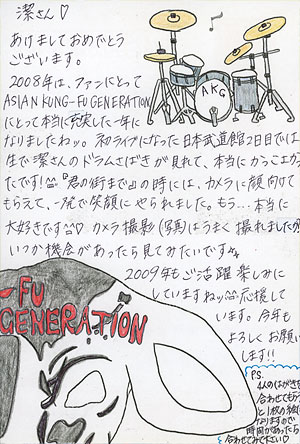 潔さん♡
あけましておめでとう
ございます。
AKG
2008年は、ファンにとって
ASIAN KUNG-FU GENERATION
にとって本当に充実した一年に
なりましたねッ。初ライブになった日本武道館2日目では
生で潔さんのドラムさばきが見れて、本当にかっこよかっ
たです!^^『君の街まで』の時には、カメラに顔向けて
もらえて、一発で笑顔にやられました。もう…本当に
大好きです^^♡カメラ撮影(写真)はうまく撮れましたか
いつか機会があったら見てみたいです
2009年もご活躍楽しみに
していますねッ^^応援して
います。今年も
よろしくお願い
します!!
-FU
GENERATION
PS.
4人のはがきを
合わせてもらう
と1枚の絵に
なりますので
時間があったら
合わせてみて下さい